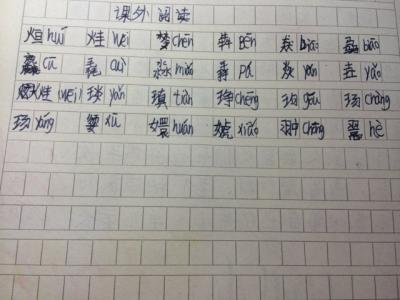 课外阅读
烜 huī 烓 wēi 棽 chēn 犇 Bēn biāo biāo
cū 毳 cuì 淼 miǎo pā 焱 yàn 垚 yáo
烓(wēi) 琰 yǎn 瑱 tiàn 琤 chēng 玽 gǒu 玚 chàng
玚 yáng xū 嬛 huán xiāo 翀 chōng 翯 hè